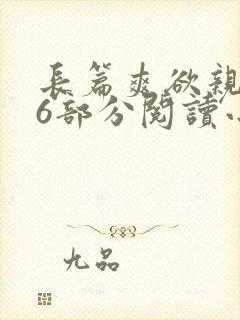 長篇爽欲親
6部分閱讀小
九品